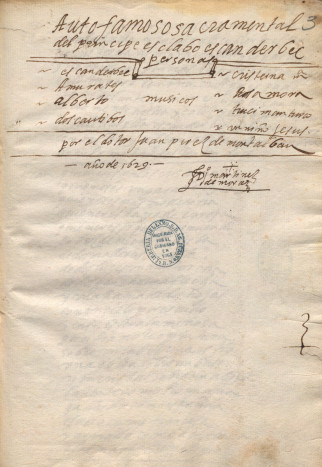 Auto famoso sacramental 3
del principe esclabo escanderbec
personas
escanderbec
Amurates
alberto
dos cautibos
musicos
cristerna
Rosa mora
un niño Jesus
por el dotor Juan perez de montalban
año de 1629